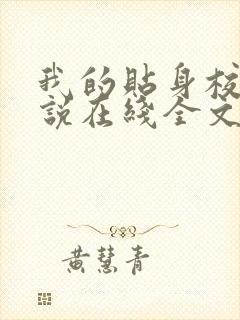 我的貼身校
說在綫全文
黃慧青